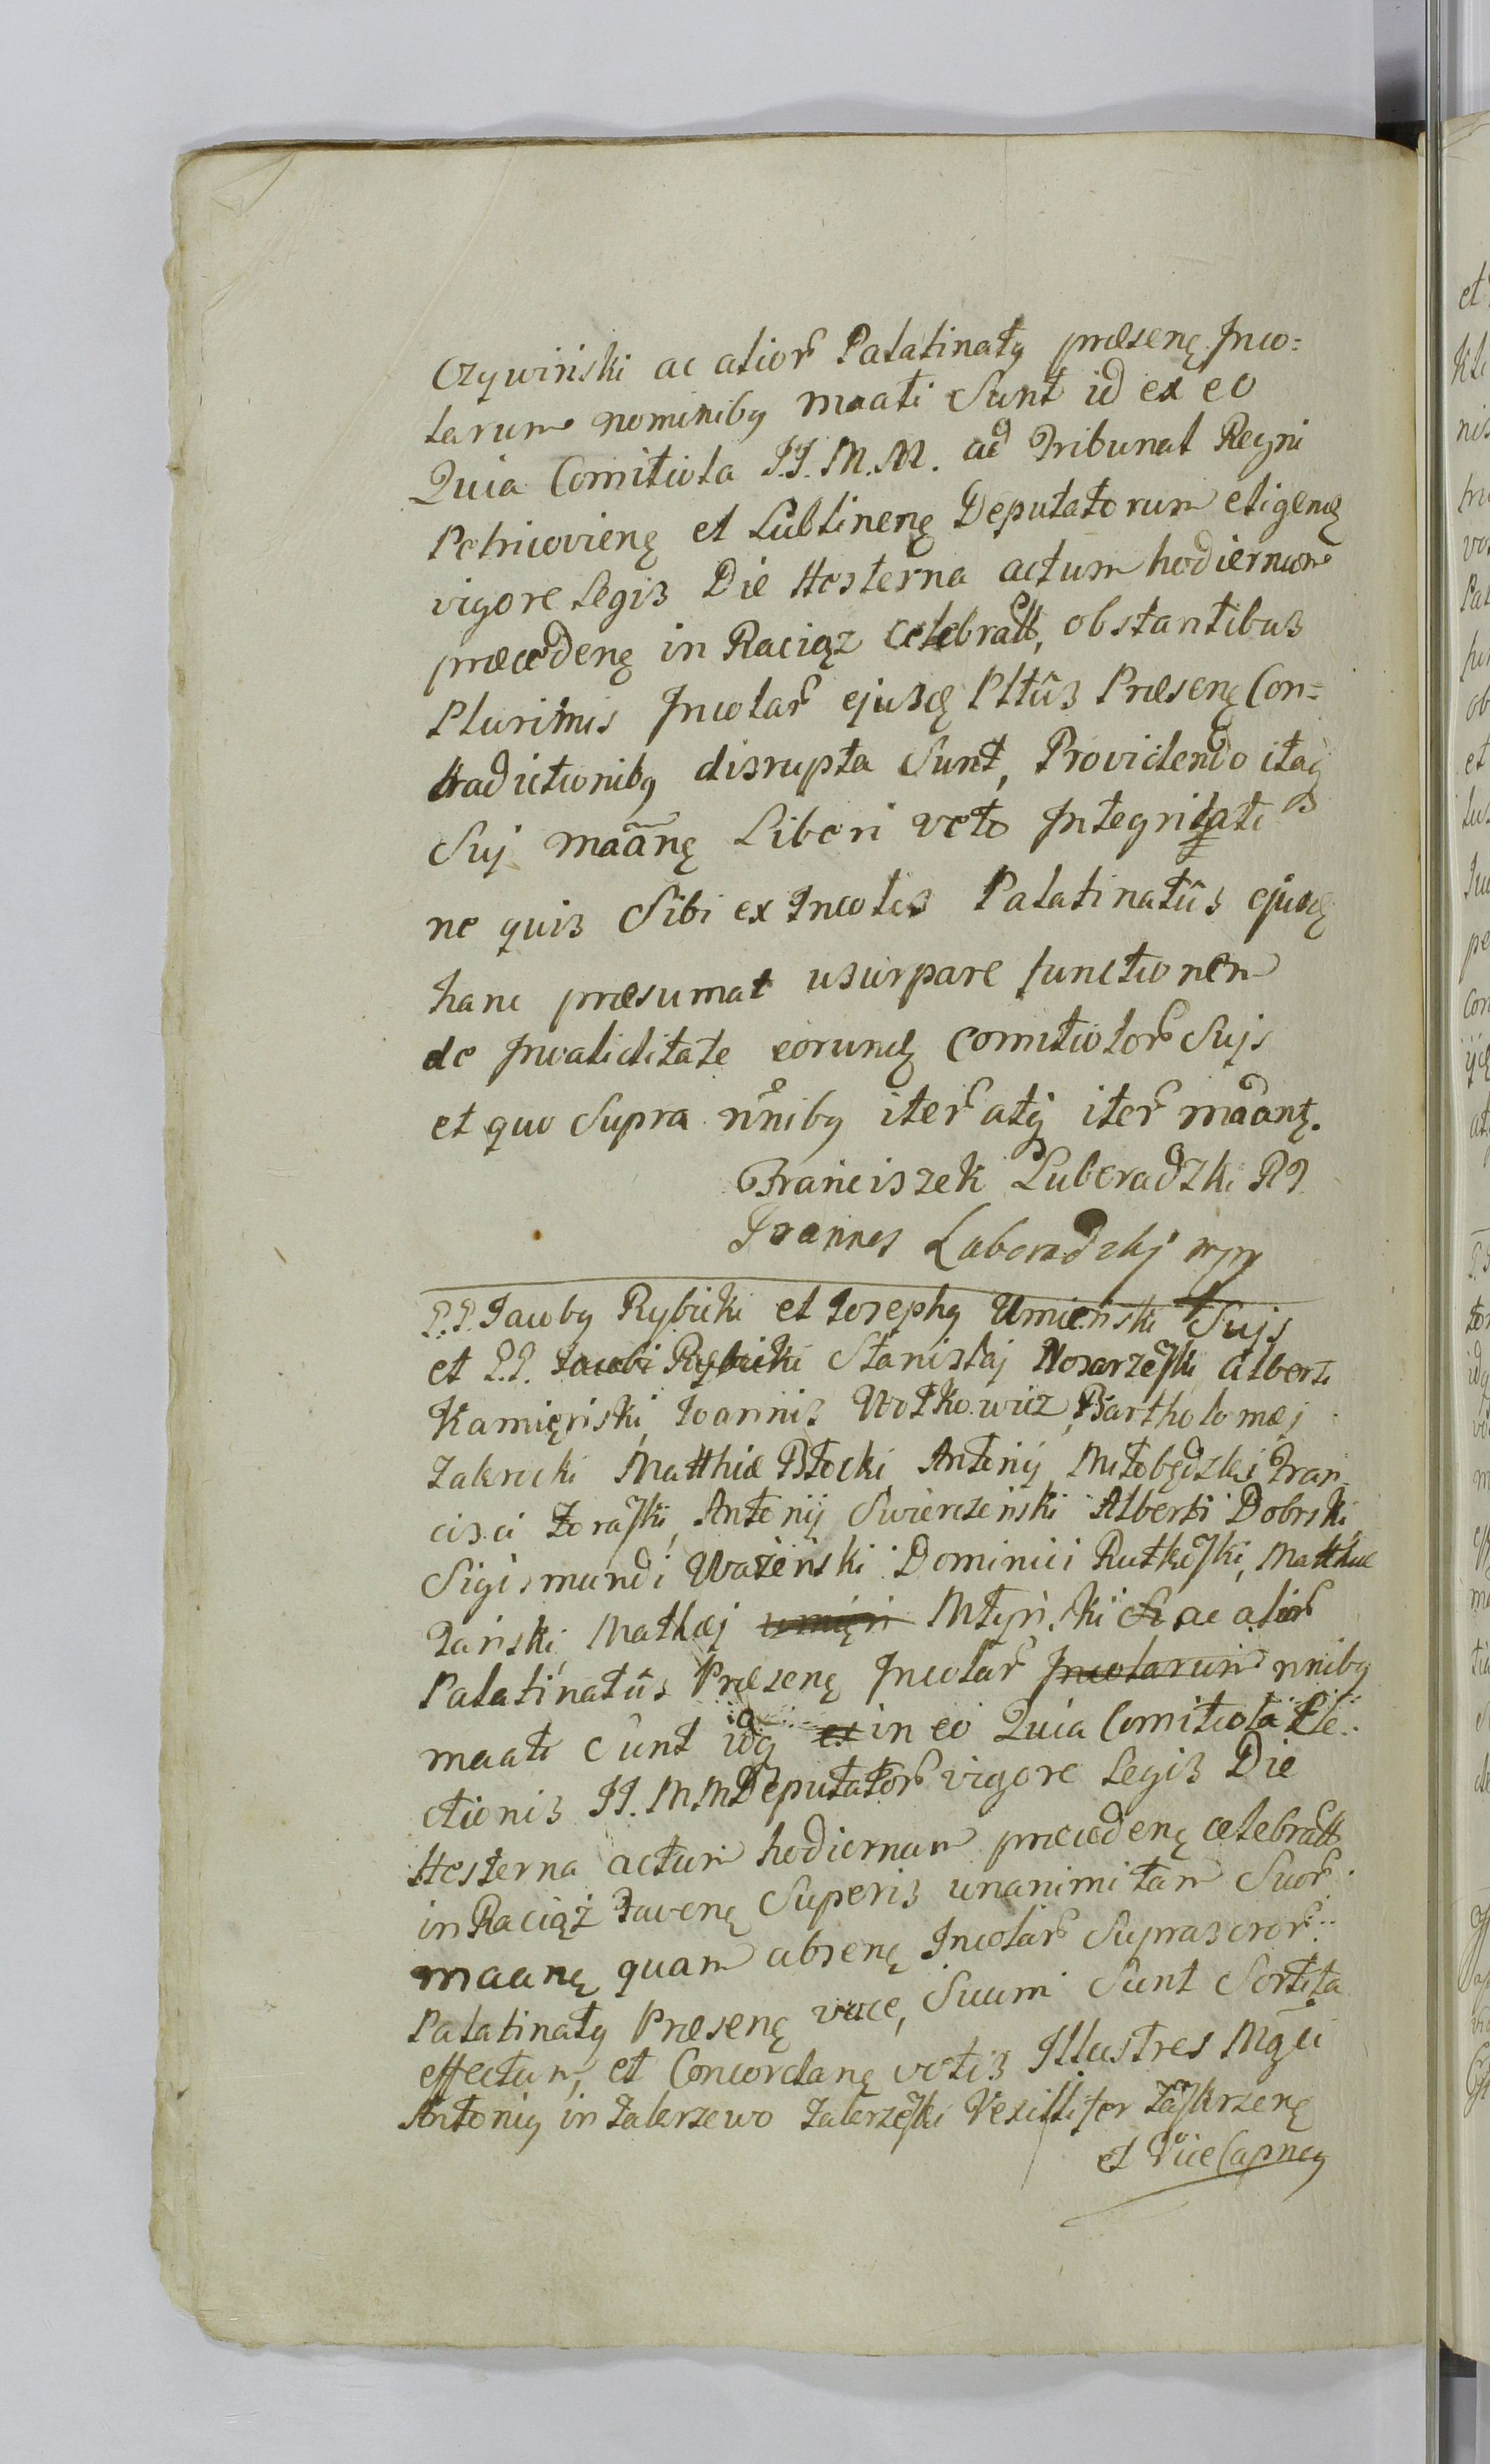 Czywiński ac alior Palatinatq præsenę Inco=
larum nominibq maati Sunt id ex eo
Quia Comitiola J.J. M.M. ad Tribunal Regni
Petricovienę et Lublinenę Deputatorum eligendę
vigore Legis Die Hesterna actum hodiernum
præcedenę in Raciąz celebratt, obstantibus
Plurimis Incolar ejusdę Pltûs Præsenę Con=
tradictionibq disrupta Sunt, Providendo itaq
Suj maãnę Liberi veto Integritati
ne quis Sibi ex Incolis Palatinatûs ejusdę
hanc præsumat usurpare functionem
de Invaliditate eorundę Comitiolor Sujs
et quo Supra nnibq iter atq iter maantę.
Franciszek Luberadzki
Joannes Luberadzkj mpp
P.P. Jacobq Rybicki et Josephq Umieński Sujs
et P.P. Jacobi Rybicki Stanislaj Nosarzeſki Alberti
Kamięński, Joannis Wołkowicz, Bartholomæj
Zakrocki Matthiæ Błocki Antonij Miłobędzki Fran-
cisci Żoraſki, Antonij Swierczeński Alberti Dobrski
Sigismundi Ważeński Dominici Rutkoſki, Matthiæ
Żański, Mathæj umięń Młyński ac alior
Palatinatûs Præsenę Incolar Incolarum nnibq
maati Sunt idq ex in eo Quia Comitiola Ele-
ctionis JJ. MM Deputator vigore Legis Die
Hesterna actum hodiernum præcedenę celebratt
in Raciąż Favenę Superis unanimi tam Suor
maanę quam absenę Incolar Suprascror
Palatinatq Præsenę voce, Suum Sunt Sortita
effectum, et Concordanę votis Illustres Mgci
Antoniq in Zakrzewo Zakrzeſki Vexillifer Zaſkrzenę
et Vice Capneq